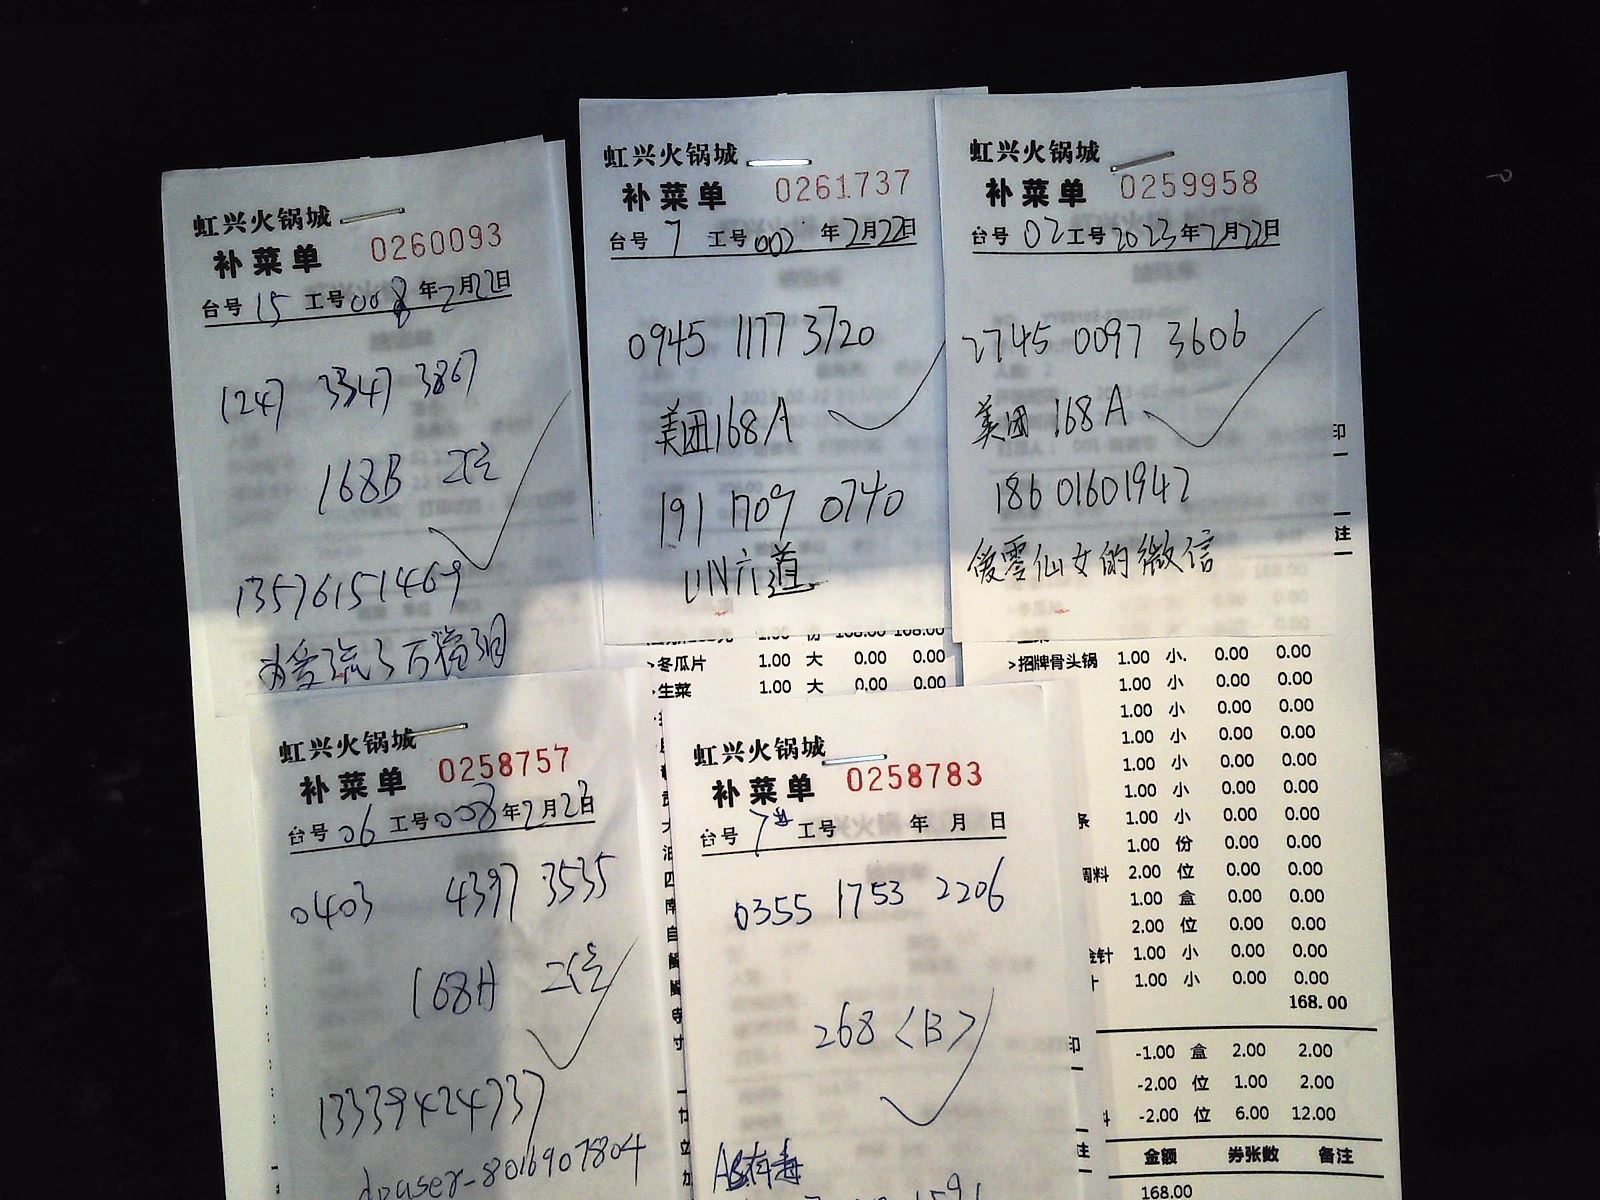 虹兴火锅城
补菜单 0260093
台号 15 工号 008 年2月22日
1247 3347 3867
168B
13576151469
虹兴火锅城
补菜单 0261737
台号 7 工号 002 年2月22日
0945 1177 3720
美团168A
191 1709 0740
UN六道
虹兴火锅城
补菜单 0259958
台号 02 工号 2023年2月22日
2745 0097 3606
美团 168A
186 01601942
傻零仙女的微信
印
注
1.00 份 168.00 168.00
>冬瓜片 1.00 大 0.00 0.00
>生菜 1.00 大 0.00 0.00
>招牌骨头锅 1.00 小 0.00 0.00
1.00 小 0.00 0.00
1.00 小 0.00 0.00
1.00 小 0.00 0.00
1.00 小 0.00 0.00
1.00 小 0.00 0.00
条 1.00 小 0.00 0.00
1.00 份 0.00 0.00
调料 2.00 位 0.00 0.00
1.00 盒 0.00 0.00
2.00 位 0.00 0.00
金针 1.00 小 0.00 0.00
1.00 小 0.00 0.00
168.00
印 -1.00 盒 2.00 2.00
-2.00 位 1.00 2.00
料 -2.00 位 6.00 12.00
注 金额 券张数 备注
168.00
虹兴火锅城
补菜单 0258757
台号 06 工号 008 年2月22日
0403 4397 3535
168A
13339424737
dpuser-8016907804
虹兴火锅城
补菜单 0258783
台号 7 工号 年 月 日
0355 1753 2206
268〈B〉
有毒